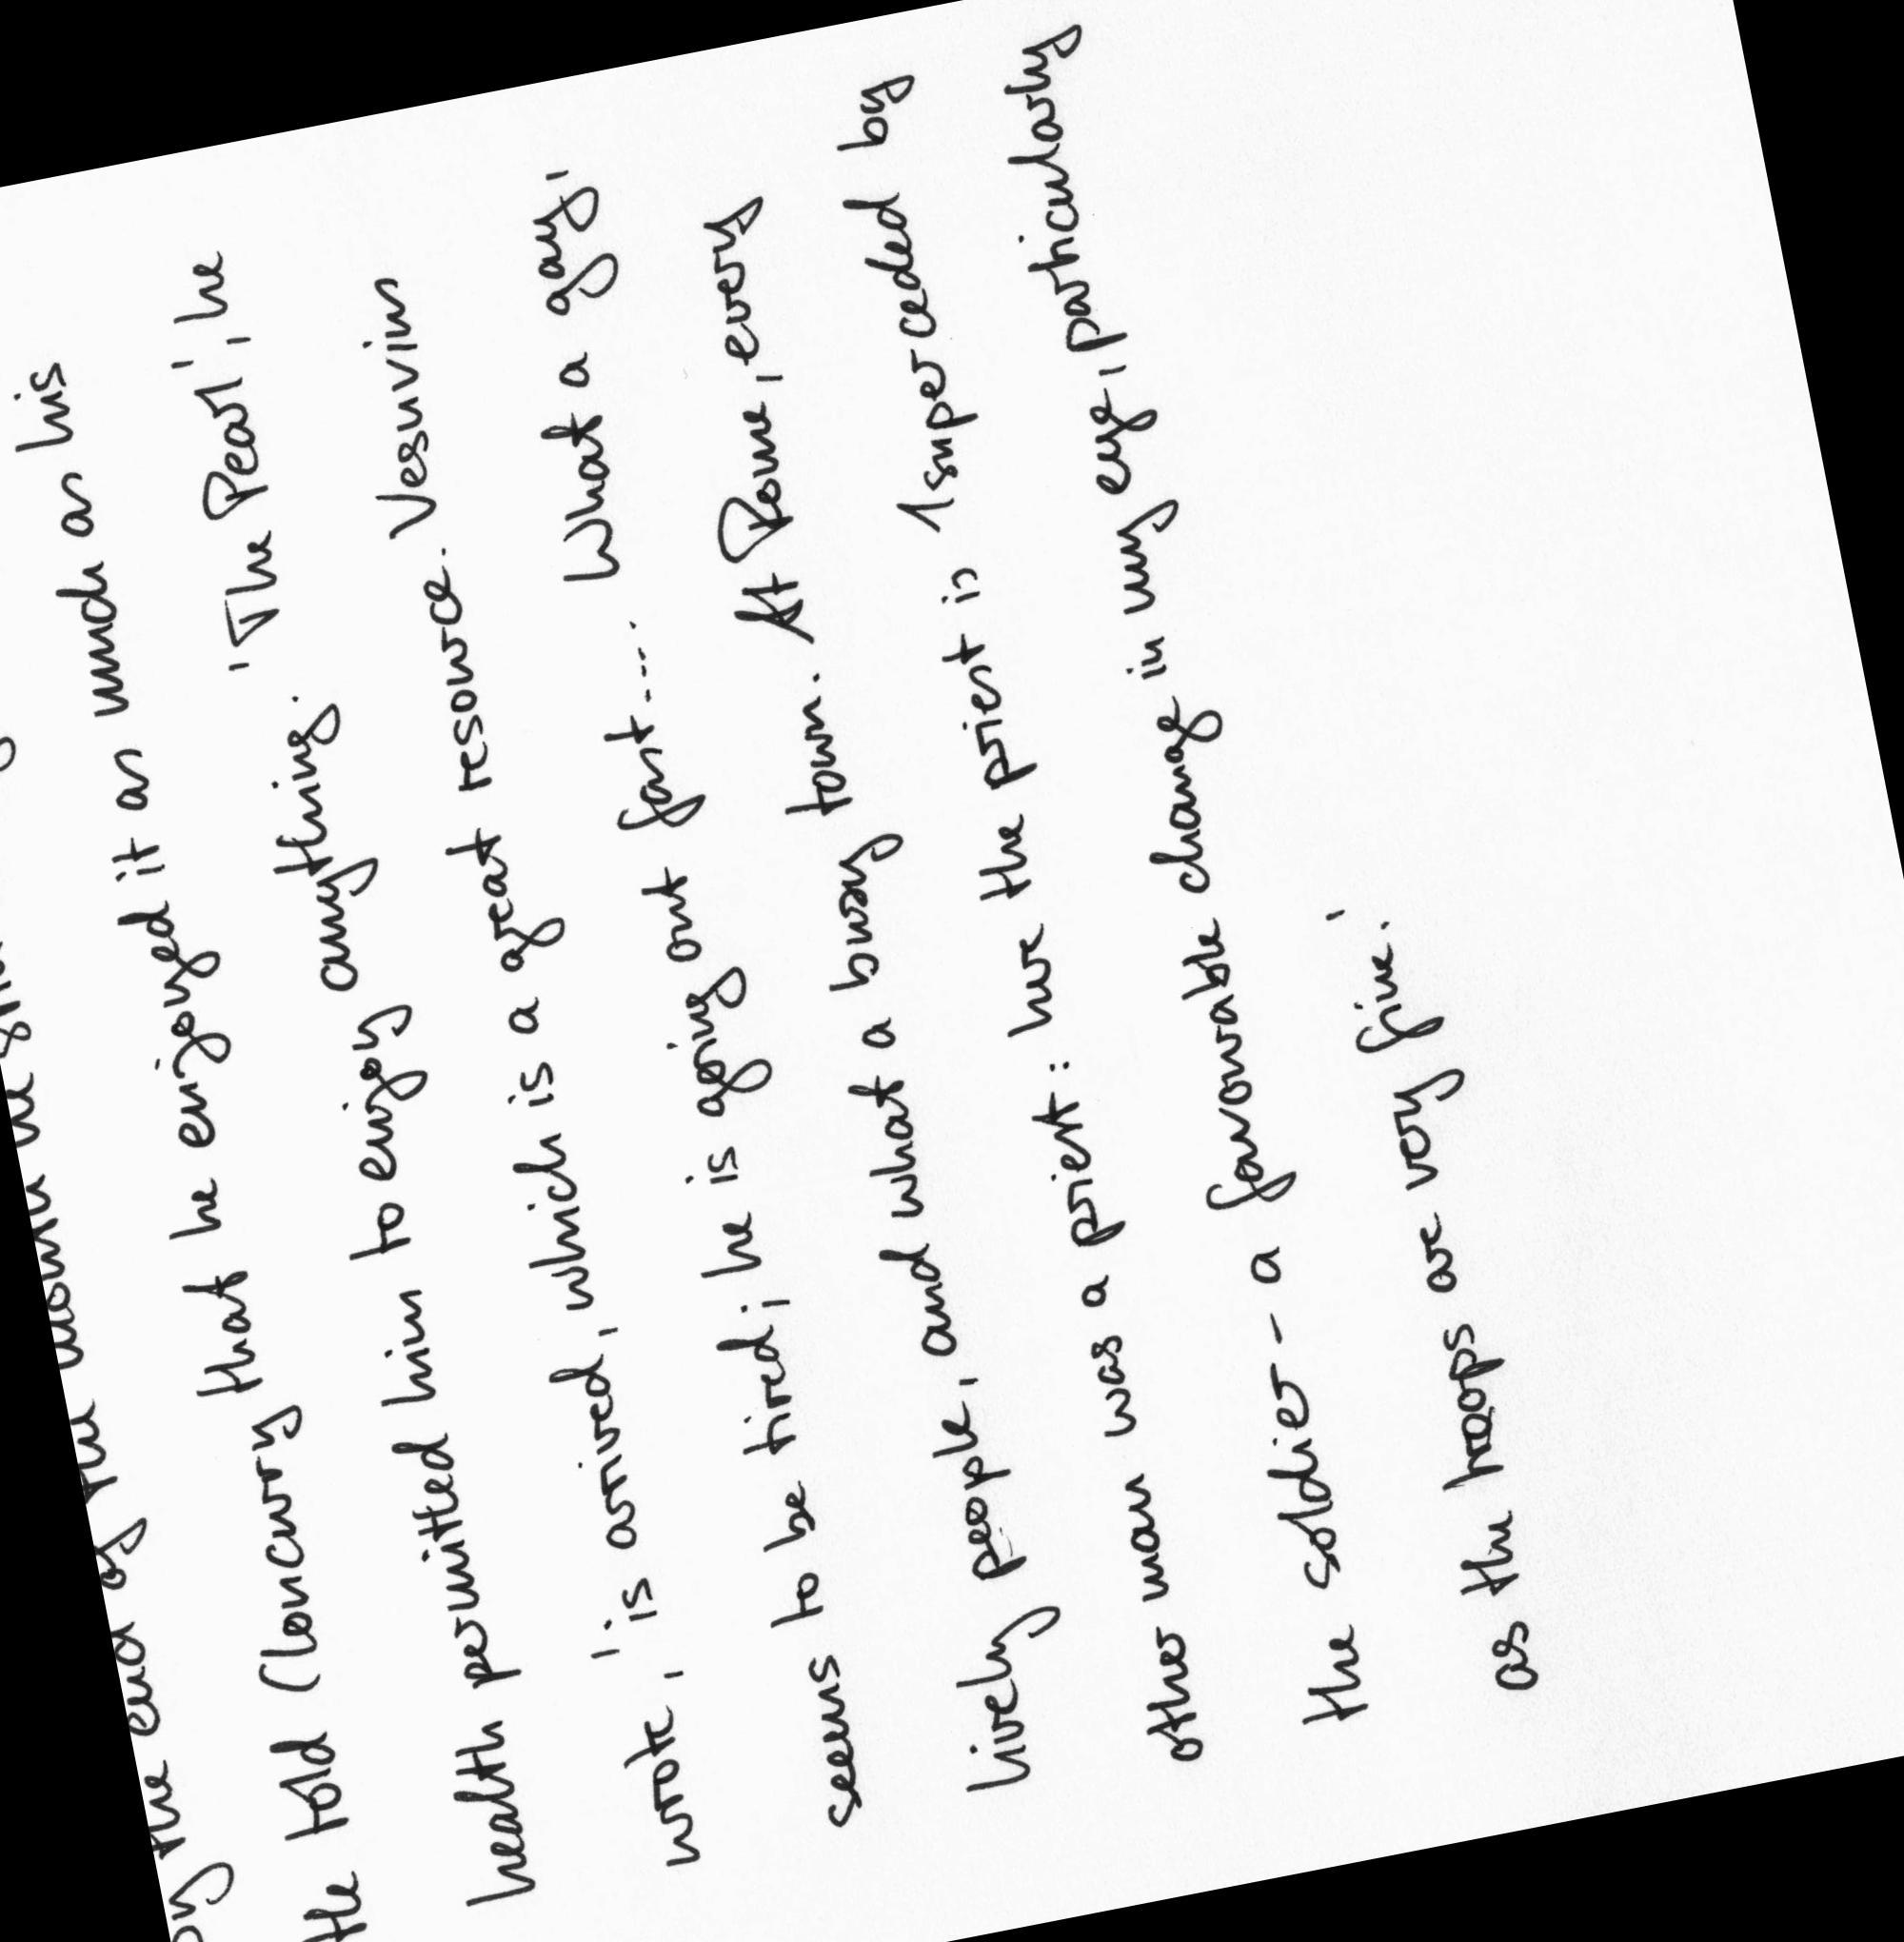 by the end of the
He told Concurry that he enjoyed it as much as his
health permitted him to enjoy anything. 'The Pearl', he
wrote, 'is arrived, which is a great resource. Vesuvius
seems to be tired; he is going out fast.... What a gay,
lively people, and what a busy town. At Rome, every
other man was a priest: here the priest is superceded by
the soldier - a favourable change in my eye, particularly
as the troops are very fine.'